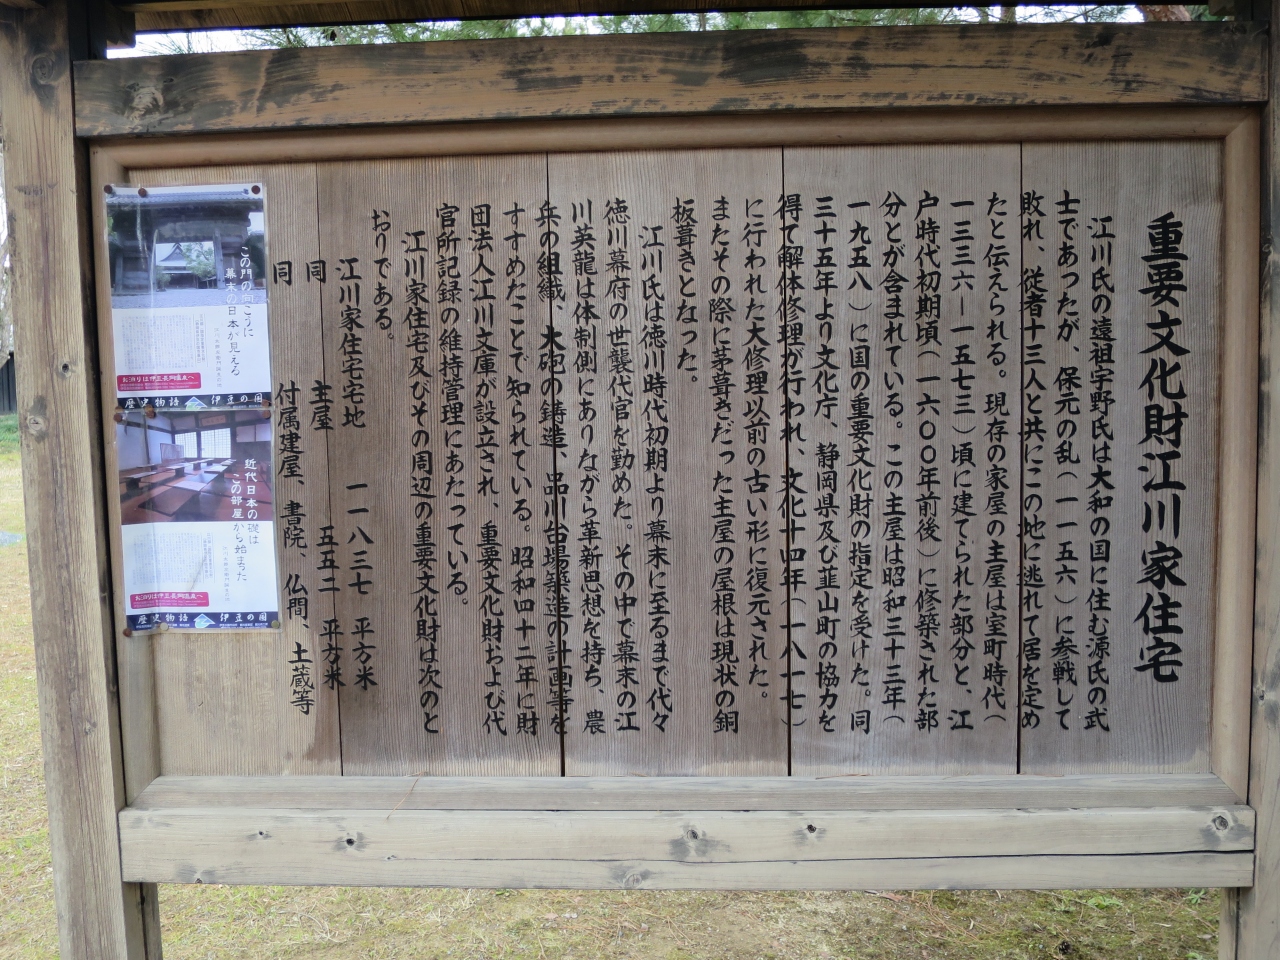 重要文化財江川家住宅
江川氏の遠祖宇野氏は大和の国に住む源氏の武
士であったが、保元の乱(一一五六)に参戦して
敗れ、従者十三人と共にこの地に逃れて居を定め
たと伝えられる。現存の家屋の主屋は室町時代(
一三三六―一五七三)頃に建てられた部分と、江
戸時代初期頃、一六〇〇年前後)に修築された部
分とが含まれている。この主屋は昭和三十三年(
一九五八)に国の重要文化財の指定を受けた。同
三十五年より文化庁、静岡県及び韮山町の協力を
得て解体修理が行われ、文化十四年(一八一七)
に行われた大修理以前の古い形に復元された。
またその際に茅葺きだった主屋の屋根は現状の銅
板葺きとなった。
江川氏は徳川時代初期より幕末に至るまで代々
徳川幕府の世襲代官を勤めた。その中で幕末の江
川英龍は体制側でありながら革新思想を持ち、農
兵の組織、大砲の鋳造、品川台場築造の計画等を
すすめたことで知られている。昭和四十二年に財
団法人江川文庫が設立され、重要文化財および代
官所記録の維持管理にあたっている。
江川家住宅及びその周辺の重要文化財は次のと
おりである。
江川家住宅宅地 一一八三七 平方米
同 主屋 五五二 平方米
同 付属建屋、書院、仏間、土蔵等
この門の向こうに
幕末の日本が見える
お泊りは伊豆長岡温泉へ
歴史物語 伊豆の国
近代日本の礎は
この部屋から始まった
お泊りは伊豆長岡温泉へ
歴史物語 伊豆の国